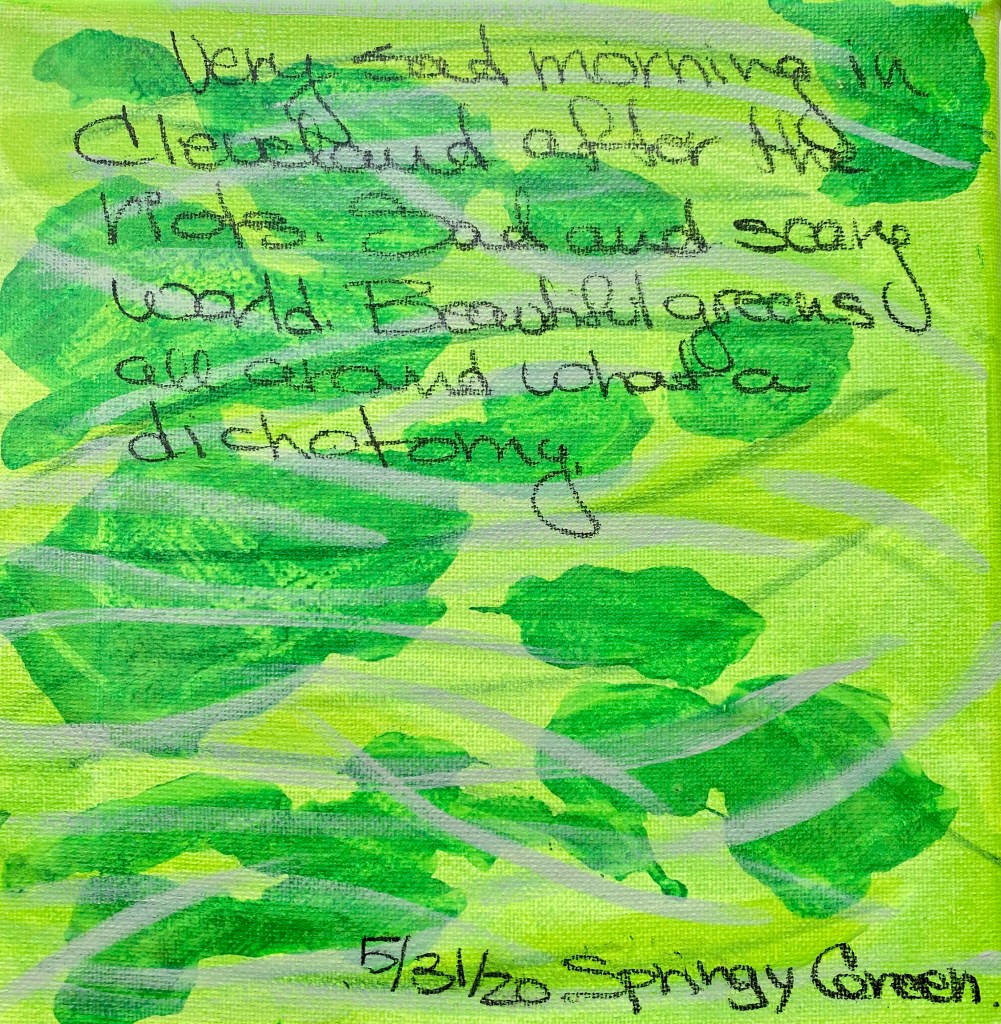 Very sad morning in
Cleveland after the
riots. Sad and scary
world. Beautiful greens
all around what a
dichotomy.
5/31/20 Springy Green.